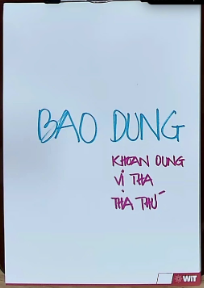 BAO DUNG
KHOAN DUNG
VỊ THA
THA THỨ
WIT